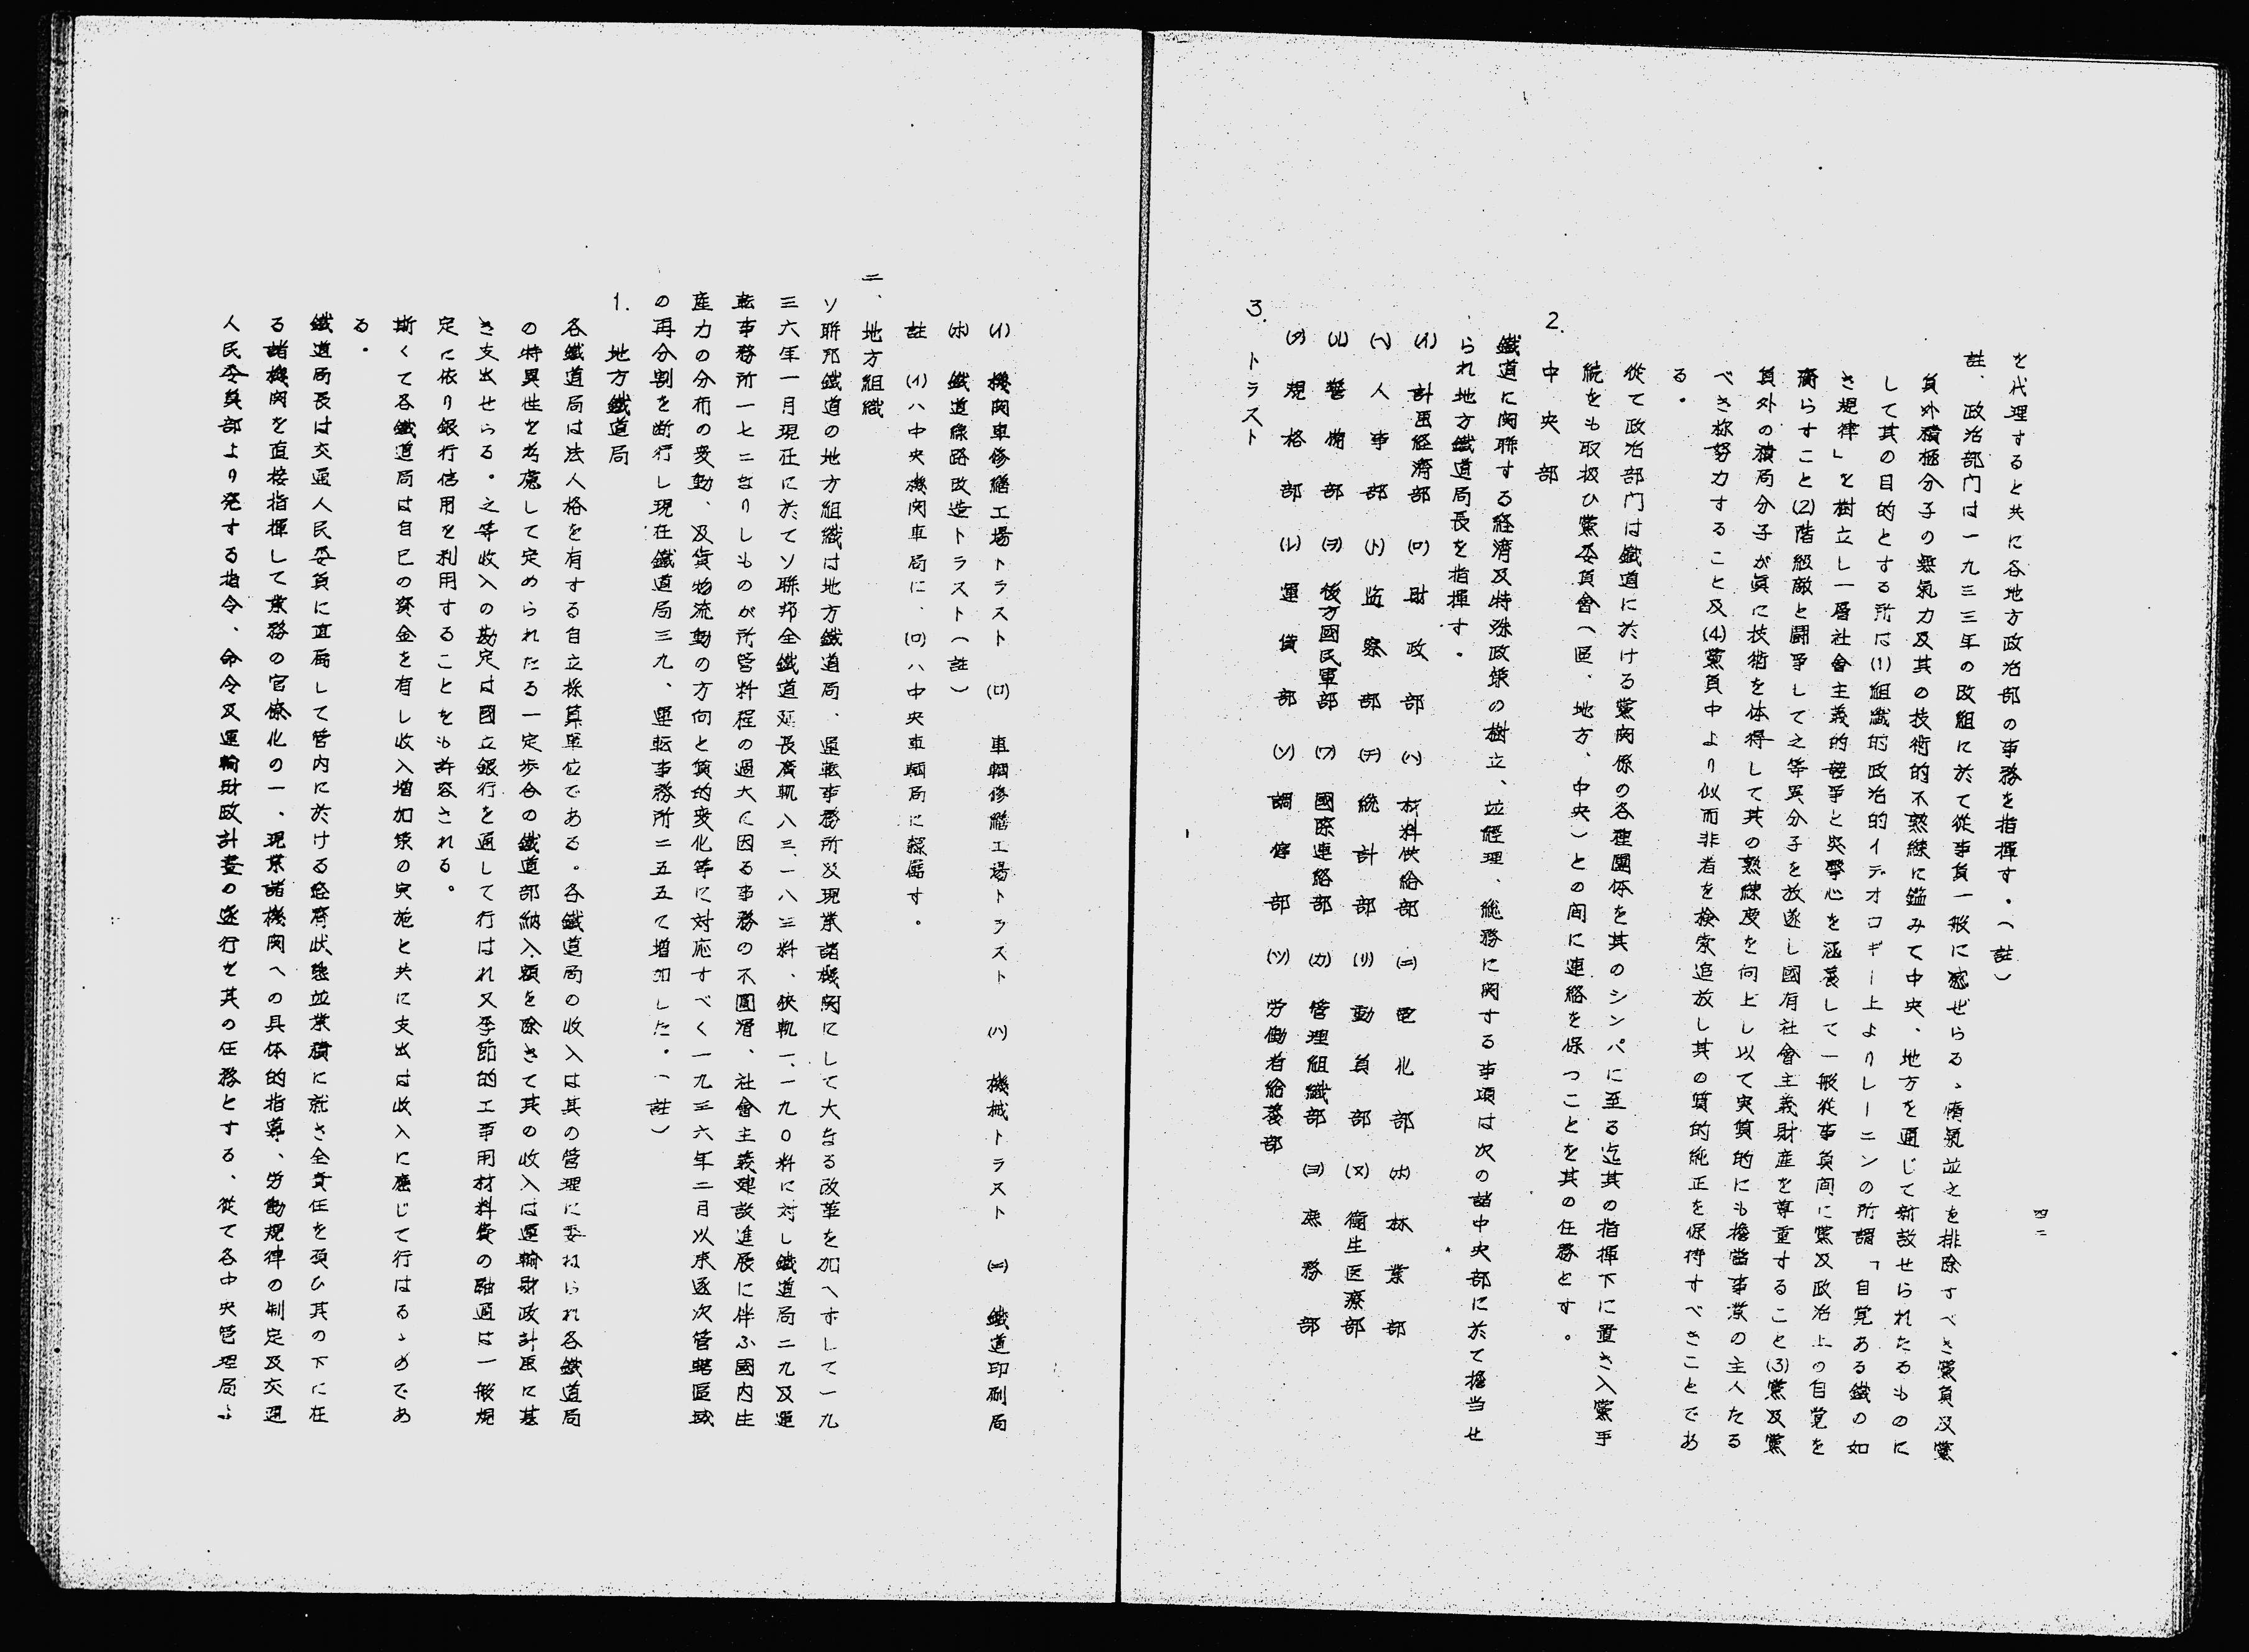 四二
を代理すると共に各地方政治部の事務を指揮す。(註)
註、政治部門は一九三三年の改組に於て従事員一般に感ぜらるゝ惰氣並之を排除すべき黨員及黨
員外積極分子の無氣力及其の技術的不熟練に鑑みて中央、地方を通じて新設せられたるものに
して其の目的とする所は(1)組織的政治的イデオロギー上よりレーニンの所謂「自覚ある鐵の如
き規律」を樹立し一層社會主義的競爭と突擊心を涵養して一般従事員間に黨及政治上の自覚を
齎らすこと(2)階級敵と闘爭して之等異分子を放逐し國有社會主義財産を尊重すること(3)黨及黨
員外の積局分子が眞に技術を体得して其の熟練度を向上し以て実質的にも擔當事業の主人たる
べき称努力すること及(4)黨員中より似而非者を検索追放し其の質的純正を保持すべきことであ
る。
從て政治部門は鐵道に於ける黨関係の各種團体を其のシンパに至る迄其の指揮下に置き入黨手
続をも取扱ひ黨委員會(區、地方、中央)との間に連絡を保つことを其の任務とす。
2. 中央部
鐵道に関聯する経濟及特殊政策の樹立、並経理、総務に関する事項は次の諸中央部に於て擔当せ
られ地方鐵道局長を指揮す。
(イ) 計画経濟部 (ロ) 財政部 (ハ) 材料供給部 (ニ) 電化部 (ホ) 林業部
(ヘ) 人事部 (ト) 監察部 (チ) 統計部 (リ) 動員部 (ヌ) 衛生医療部
(ル) 警備部 (ヲ) 後方國民軍部 (ワ) 國際連絡部 (カ) 管理組織部 (ヨ) 庶務部
(タ) 規格部 (レ) 運賃部 (ソ) 調停部 (ツ) 労働者給養部
3. トラスト
(イ) 機関車修繕工場トラスト (ロ) 車輌修繕工場トラスト (ハ) 機械トラスト (ニ) 鐵道印刷局
(ホ) 鐵道線路改造トラスト(註)
註 (イ)ハ中央機関車局に、(ロ)ハ中央車輌局に隷屬す。
二、地方組織
ソ聯邦鐵道の地方組織は地方鐵道局、運転事務所及現業諸機関にして大なる改革を加へずして一九
三六年一月現在に於てソ聯邦全鐵道延長廣軌八三、一八三粁、狭軌一、一九〇粁に対し鐵道局二九及運
転事務所一七二なりしものが所管粁程の過大に因る事務の不圓滑、社會主義建設進展に伴ふ國内生
産力の分布の変動、及貨物流動の方向と質的変化等に対応すべく一九三六年二月以来逐次管轄區域
の再分割を断行し現在鐵道局三九、運転事務所二五五て増加した。(註)
1. 地方鐵道局
各鐵道局は法人格を有する自立採算單位である。各鐵道局の收入は其の管理に委ねられ各鐵道局
の特異性を考慮して定められたる一定歩合の鐵道部納入額を除きて其の收入は運輸財政計画に基
き支出せらる。之等收入の勘定は國立銀行を通して行はれ又季節的工事用材料費の融通は一般規
定に依り銀行信用を利用することをも許容される。
斯くて各鐵道局は自己の資金を有し收入増加策の実施と共に支出は收入に應じて行はるゝのであ
る。
鐵道局長は交通人民委員に直屬して管内に於ける経濟狀態並業績に就き全責任を負ひ其の下に在
る諸機関を直接指揮して業務の官僚化の一、現業諸機関への具体的指導、労働規律の制定及交通
人民委員部より発する指令、命令及運輸財政計畫の遂行を其の任務とする、從て各中央管理局よ